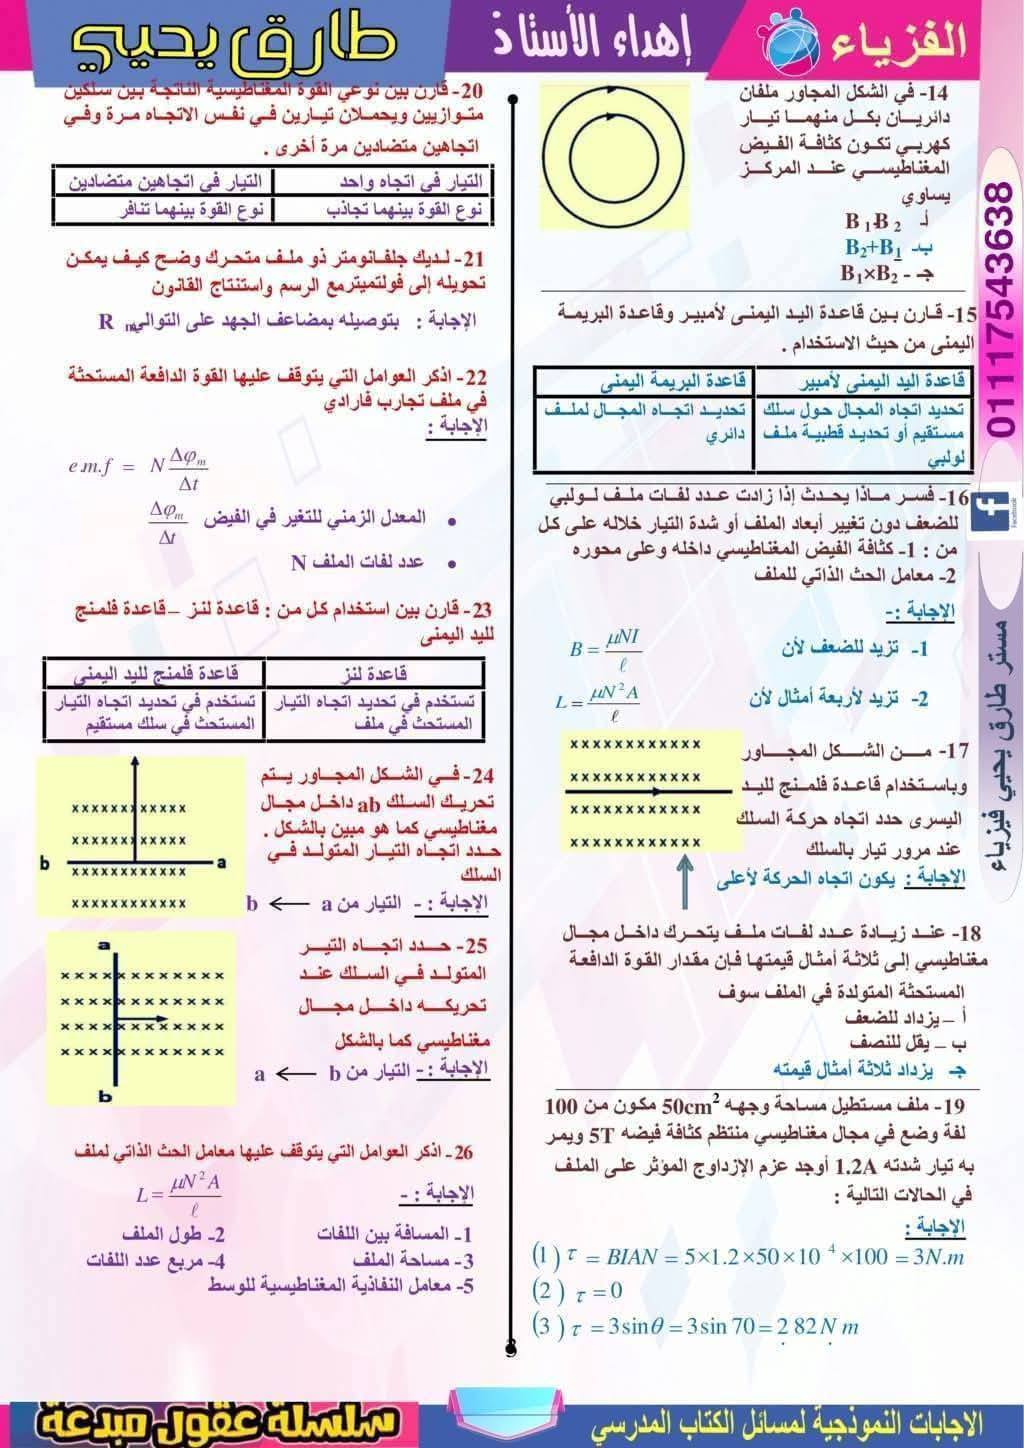 الفزياء
إهداء الأستاذ
طارق يحيي
14- في الشكل المجاور ملفان
دائريان بكل منهما تيار
كهربي تكون كثافة الفيض
المغناطيسي عند المركز
يساوي
أ- B1-B2
ب- B2+B1
جـ - B1×B2
15- قارن بين قاعدة اليد اليمنى لأمبير وقاعدة البريمة
اليمنى من حيث الاستخدام .
قاعدة اليد اليمنى لأمبير | قاعدة البريمة اليمنى
تحديد اتجاه المجال حول سلك | تحديد اتجاه المجال لملف
مستقيم أو تحديد قطبية ملف | دائري
لولبي
16- فسر ماذا يحدث إذا زادت عدد لفات ملف لولبي
للضعف دون تغيير أبعاد الملف أو شدة التيار خلاله على كل
من : 1- كثافة الفيض المغناطيسي داخله وعلى محوره
2- معامل الحث الذاتي للملف
الإجابة :-
1- تزيد للضعف لأن B = μNI / ℓ
2- تزيد لأربعة أمثال لأن L = μN² A / ℓ
17- من الشكل المجاور
وباستخدام قاعدة فلمنج لليد
اليسرى حدد اتجاه حركة السلك
عند مرور تيار بالسلك
الإجابة : يكون اتجاه الحركة لأعلى
x x x x x x x x x x x x
x x x x x x x x x x x x
x x x x x x x x x x x x
x x x x x x x x x x x x
18- عند زيادة عدد لفات ملف يتحرك داخل مجال
مغناطيسي إلى ثلاثة أمثال قيمتها فإن مقدار القوة الدافعة
المستحثة المتولدة في الملف سوف
أ – يزداد للضعف
ب – يقل للنصف
جـ- يزداد ثلاثة أمثال قيمته
19- ملف مستطيل مساحة وجهه 50cm² مكون من 100
لفة وضع في مجال مغناطيسي منتظم كثافة فيضه 5T ويمر
به تيار شدته 1.2A أوجد عزم الإزدواج المؤثر على الملف
في الحالات التالية :
الإجابة :
(1) τ = BIAN = 5×1.2×50×10 ⁴ ×100 = 3N.m
(2) τ = 0
(3) τ = 3sinθ = 3sin 70 = 2.82 N.m
20- قارن بين نوعي القوة المغناطيسية الناتجة بين سلكين
متوازيين ويحملان تيارين في نفس الاتجاه مرة وفي
اتجاهين متضادين مرة أخرى .
التيار في اتجاه واحد | التيار في اتجاهين متضادين
نوع القوة بينهما تجاذب | نوع القوة بينهما تنافر
21- لديك جلفانومتر ذو ملف متحرك وضح كيف يمكن
تحويله إلى فولتميترمع الرسم واستنتاج القانون
الإجابة : بتوصيله بمضاعف الجهد على التوالي R m
22- اذكر العوامل التي يتوقف عليها القوة الدافعة المستحثة
في ملف تجارب فارادي
الإجابة :
e.m.f = N Δφm / Δt
• المعدل الزمني للتغير في الفيض Δφm / Δt
• عدد لفات الملف N
23- قارن بين استخدام كل من : قاعدة لنز – قاعدة فلمنج
لليد اليمنى
قاعدة لنز | قاعدة فلمنج لليد اليمني
تستخدم في تحديد اتجاه التيار | تستخدم في تحديد اتجاه التيار
المستحث في ملف | المستحث في سلك مستقيم
24- في الشكل المجاور يتم
تحريك السلك ab داخل مجال
مغناطيسي كما هو مبين بالشكل .
حدد اتجاه التيار المتولد في
السلك
الإجابة :- التيار من a ← b
x x x x x x x x x x x x
x x x x x x x x x x x x
b a
x x x x x x x x x x x x
x x x x x x x x x x x x
25- حدد اتجاه التير
المتولد في السلك عند
تحريكه داخل مجال
مغناطيسي كما بالشكل
الإجابة :- التيار من b ← a
a
x x x x x x x x x x x x x
x x x x x x x x x x x x x
x x x x x x x x x x x x x
x x x x x x x x x x x x x
b
26- اذكر العوامل التي يتوقف عليها معامل الحث الذاتي لملف
الإجابة :-
L = μN² A / ℓ
1- المسافة بين اللفات 2- طول الملف
3- مساحة الملف 4- مربع عدد اللفات
5- معامل النفاذية المغناطيسية للوسط
01117543638
Facebook
مستر طارق يحيي فيزياء
الاجابات النموذجية لمسائل الكتاب المدرسي
سلسلة عقول مبدعة